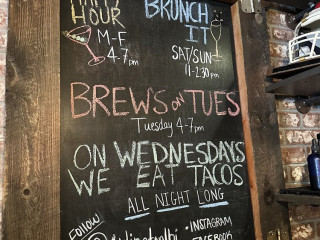 HAPPY HOUR
BRUNCH IT
M-F
4-7pm
SAT/SUN
11-2:30pm
BREWS on TUES
Tuesday 4-7pm
ON WEDNESDAYS
WE EAT TACOS
ALL NIGHT LONG
FOLLOW
• INSTAGRAM
FACEBOOK